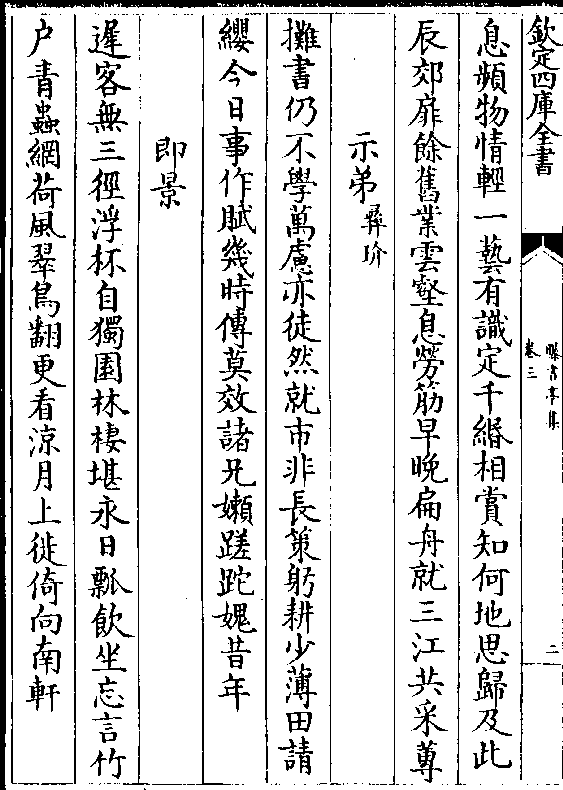 欽定四庫全書
曝書亭集
卷三
二
息頻物情輕一藝有識定千緡相賞知何地思歸及此
辰郊扉餘舊業雲壑息勞筋早晚扁舟就三江共采蓴
示弟彞玠
攤書仍不學萬慮亦徒然就市非長策躬耕少薄田請
纓今日事作賦幾時傳莫效諸兄嬾蹉跎媿昔年
即景
遲客無三徑浮杯自獨園林棲堪永日瓢飲坐忘言竹
户青蟲網荷風翠鳥翻更看涼月上徙倚向南軒